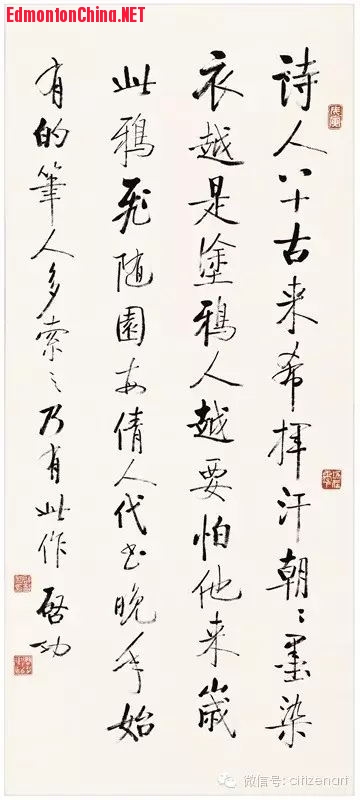 EdmontonChina.NET
詩人八十古来希揮汗朝〻墨染
衣越是塗鴉人越要怕他来歲
此鴉飛随園倩人代书晚年始
有的筆人多索之乃有此作 啓功
微信号: citizenart